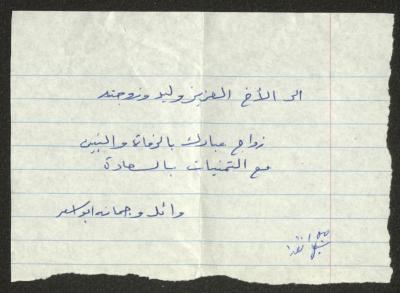 الى الأخ العزيز وليد وزوجته
زواج مبارك بالرفاة والبنين
مع التمنيات بالسعادة
وائل وجمانه ابو اسعد